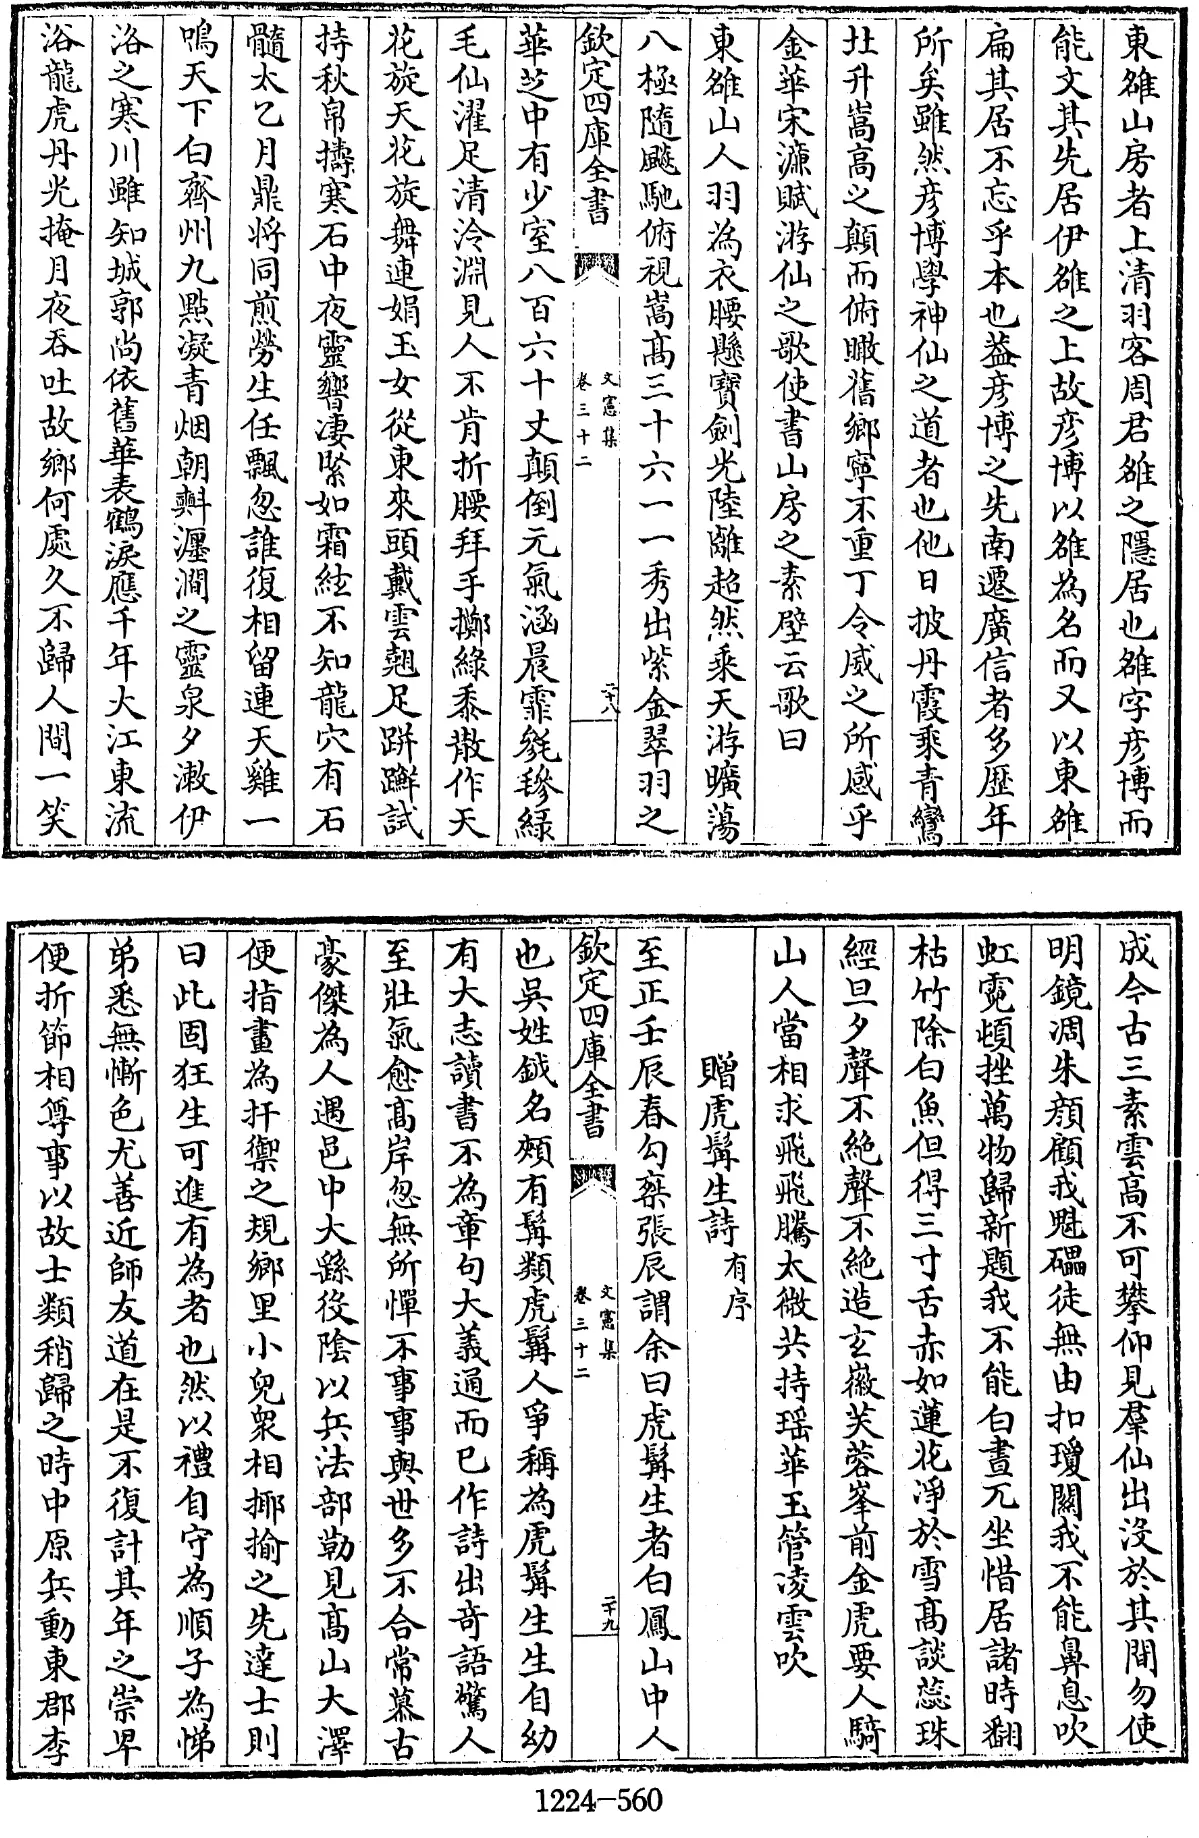 東雒山房者上清羽客周君雒之隱居也雒字彦博而
能文其先居伊雒之上故彦博以雒為名而又以東雒
扁其居不忘乎本也葢彦博之先南遷廣信者多歴年
所矣雖然彦博學神仙之道者也他日披丹霞乘青鸞
㐀升嵩高之顛而俯瞰舊鄉寧不重丁令威之所感乎
金華宋濂賦游仙之歌使書山房之素壁云歌曰
東雒山人羽為衣腰懸寶劍光陸離超然乘天游曠蕩
八極隨飇馳俯視嵩髙三十六一一秀出紫金翠羽之
欽定四庫全書
文憲集
卷三十二
二十八
華芝中有少室八百六十丈顛倒元氣涵晨霏毵毿緑
毛仙濯足清泠淵見人不肯折腰拜手擲綠黍散作天
花旋天花旋舞連娟玉女從東來頭戴雲翹足跰躃試
持秋帛擣寒石中夜靈響凄緊如霜絃不知龍穴有石
髓太乙月鼎将同煎勞生任飄忽誰復相留連天雞一
鳴天下白齊州九點凝青烟朝㪺瀍澗之靈泉夕潄伊
洛之寒川雖知城郭尚依舊華表鶴淚應千年大江東流
浴龍虎丹光掩月夜吞吐故鄉何處久不歸人間一笑
成今古三素雲高不可攀仰見羣仙出沒於其間勿使
明鏡凋朱顔顧我魁礧徒無由扣瓊關我不能鼻息吹
虹霓頓挫萬物歸新題我不能白晝兀坐惜居諸時翻
枯竹除白魚但得三寸舌赤如蓮花淨於雪高談蕊珠
經旦夕聲不絶聲不絶造玄嶶芙蓉峯前金虎要人騎
山人當相求飛飛騰太微共持瑶華玉管凌雲吹
贈虎髯生詩有序
至正壬辰春勾桒張辰謂余曰虎髯生者白鳳山中人
欽定四庫全書
文憲集
卷三十二
二十九
也吳姓鉞名頰有髯類虎髯人爭稱為虎髯生生自幼
有大志讀書不為章句大義通而已作詩出竒語驚人
至壯氣愈髙岸忽無所憚不事事與世多不合常慕古
豪傑為人遇邑中大繇役陰以兵法部勒見髙山大澤
便指畫為扞禦之規鄉里小兒衆相揶揄之先達士則
曰此固狂生可進有為者也然以禮自守為順子為悌
弟悉無慚色尤善近師友道在是不復計其年之崇卑
便折節相尊事以故士類稍歸之時中原兵動東郡李
1224-560